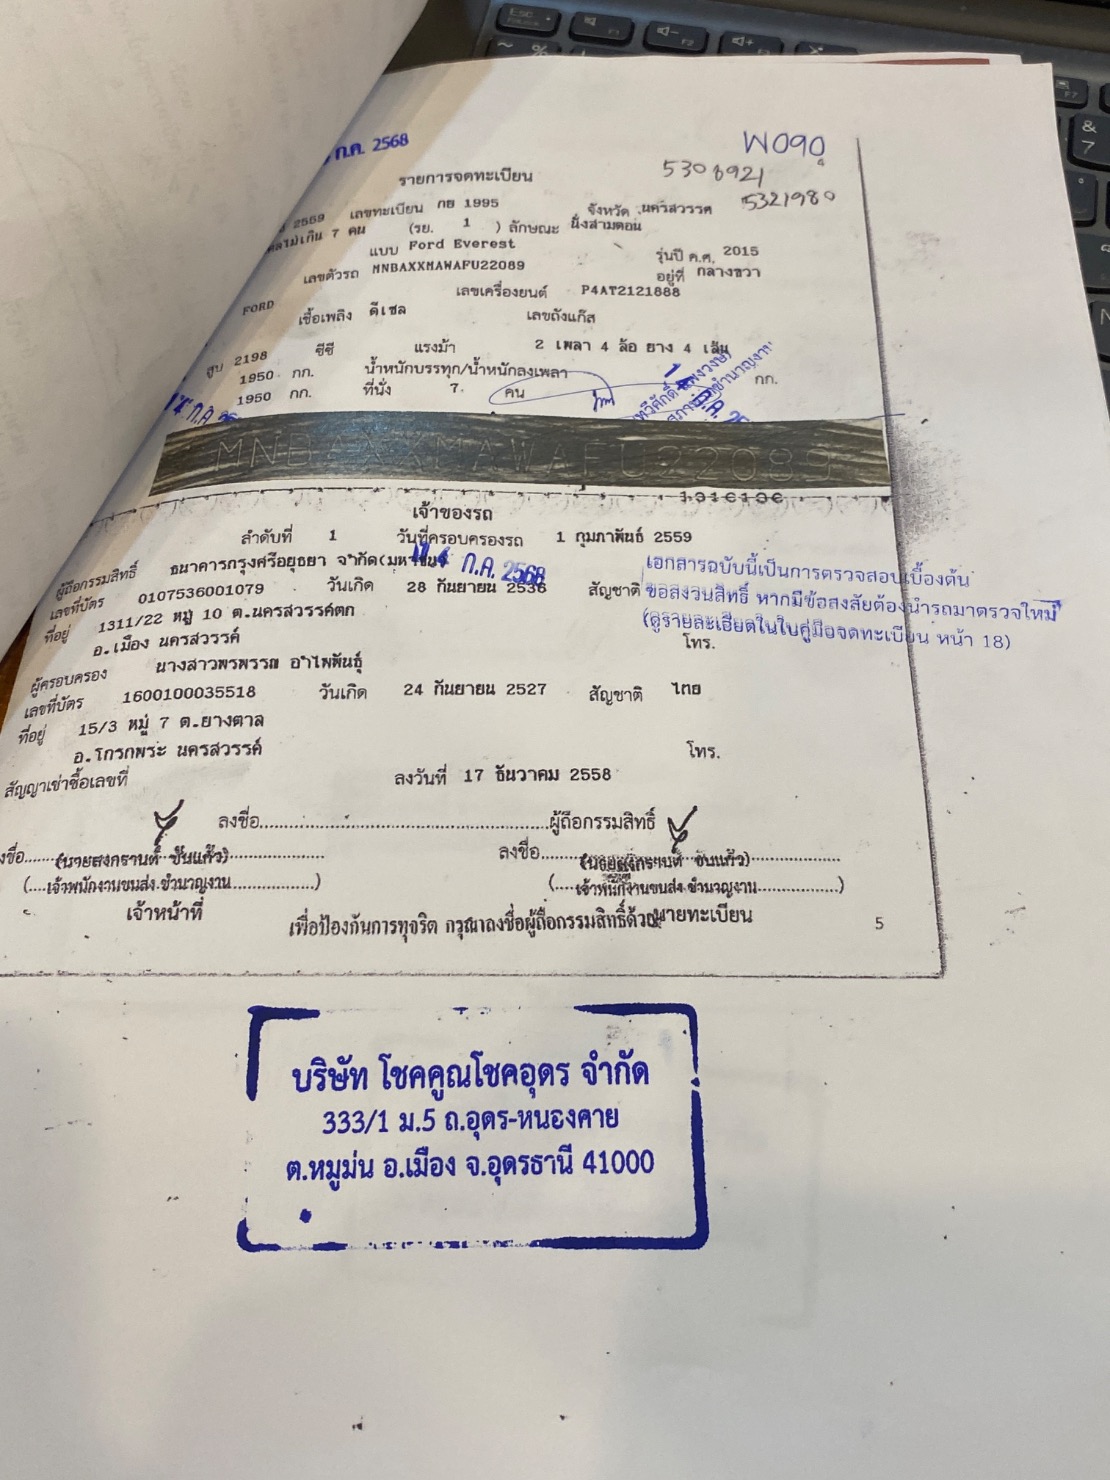 ก.ค. 2568
W090
5308921
5321980
รายการจดทะเบียน
2559 เลขทะเบียน กย 1995 จังหวัด นครสวรรค์
ไม่เกิน 7 คน (รย. 1 ) ลักษณะ นั่งสามตอน
แบบ Ford Everest รุ่นปี ค.ศ. 2015
เลขตัวรถ MNBAXXMAWAFU22089 อยู่ที่ กลางขวา
FORD เลขเครื่องยนต์ P4AT2121888
เชื้อเพลิง ดีเซล เลขถังแก๊ส
สูบ 2198 ซีซี แรงม้า 2 เพลา 4 ล้อ ยาง 4 เส้น
1950 กก. น้ำหนักบรรทุก/น้ำหนักลงเพลา กก.
1950 กก. ที่นั่ง 7 คน
14 ก.ค.
MNBAXXMAWAFU22089
เจ้าของรถ
ลำดับที่ 1 วันที่ครอบครองรถ 1 กุมภาพันธ์ 2559
ผู้ถือกรรมสิทธิ์ ธนาคารกรุงศรีอยุธยา จำกัด(มหาชน)
14 ก.ค. 2568
เลขที่บัตร 0107536001079 วันเกิด 28 กันยายน 2536 สัญชาติ
ที่อยู่ 1311/22 หมู่ 10 ต.นครสวรรค์ตก
อ.เมือง นครสวรรค์ โทร.
เอกสารฉบับนี้เป็นการตรวจสอบเบื้องต้น
ขอสงวนสิทธิ์ หากมีข้อสงสัยต้องนำรถมาตรวจใหม่
(ดูรายละเอียดในใบคู่มือจดทะเบียน หน้า 18)
ผู้ครอบครอง นางสาวพรพรรณ อำไพพันธุ์
เลขที่บัตร 1600100035518 วันเกิด 24 กันยายน 2527 สัญชาติ ไทย
ที่อยู่ 15/3 หมู่ 7 ต.ยางตาล
อ.โกรกพระ นครสวรรค์ โทร.
สัญญาเช่าซื้อเลขที่ ลงวันที่ 17 ธันวาคม 2558
ลงชื่อ ผู้ถือกรรมสิทธิ์
ลงชื่อ (นายสงกรานต์ ขันแก้ว) ลงชื่อ (นายสงกรานต์ ขันแก้ว)
(เจ้าพนักงานขนส่ง ชำนาญงาน) (เจ้าพนักงานขนส่ง ชำนาญงาน)
เจ้าหน้าที่ นายทะเบียน
เพื่อป้องกันการทุจริต กรุณาลงชื่อผู้ถือกรรมสิทธิ์ด้วย
5
บริษัท โชคคูณโชคอุดร จำกัด
333/1 ม.5 ถ.อุดร-หนองคาย
ต.หมูม่น อ.เมือง จ.อุดรธานี 41000